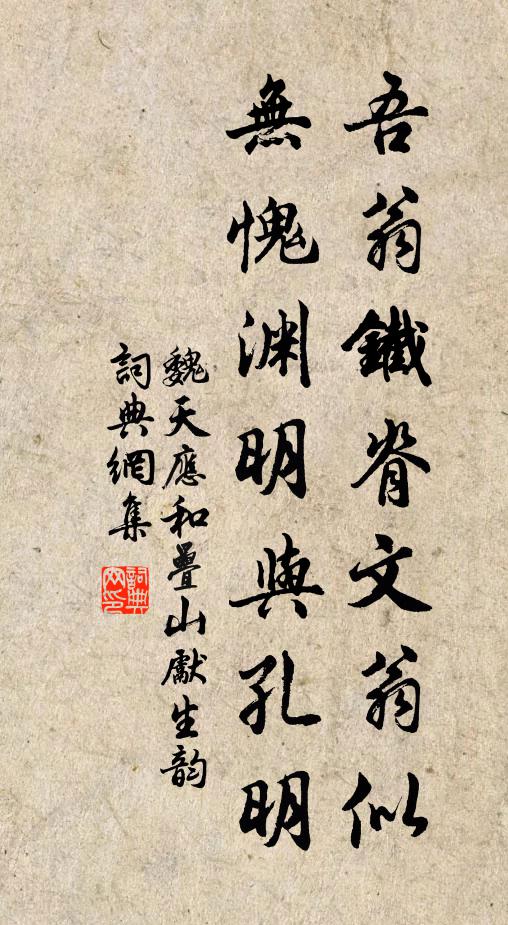 吾翁鐵脊文翁似
無愧渊明與孔明
魏天應和疊山獻生韵
詞典網集
詞典網印